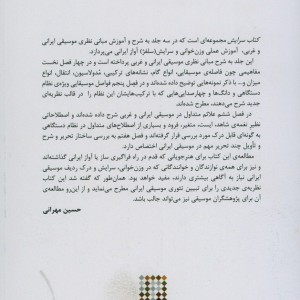 کتاب سرایش مجموعه‌ای است که در سه جلد به شرح و آموزش مبانی نظری موسیقی ایرانی
و غربی، آموزش عملی وزن‌خوانی و سرایش(سلفژ) آواز ایرانی می‌پردازد.
این جلد به شرح مبانی نظری موسیقی ایرانی و غربی پرداخته است. در چهار فصل نخست
مفاهیمی چون فاصله‌ی موسیقایی، انواع گام، نشانه‌های ترکیبی، مُدولاسیون، انتقال، انواع
میزان و... با ذکر نمونه‌هایی توضیح داده شده‌اند و در فصل پنجم فواصل موسیقایی ویژه‌ی نظام
دستگاهی و دانگ‌ها و چهارصدایی‌هایی که با ترکیب‌هایشان این نظام را در قالب نظریه‌ای
جدید شرح می‌دهند، مطرح شده‌اند.
در فصل ششم علائم متداول در موسیقی ایرانی و غربی شرح داده شده‌اند و اصطلاحاتی
نظیر نغمه‌ی شاهد، ایست، متغیر، فرود و بسیاری از اصطلاح‌های متداول در نظام دستگاهی
به گونه‌ای قابل درک مورد بررسی قرار گرفته‌اند و فصل هفتم به بررسی ساختار تحریر و شرح
و تأویل چند تحریر مهم در موسیقی ایرانی پرداخته است.
مطالعه‌ی این کتاب برای هنرجویانی که قدم در راه فراگیری ساز یا آواز ایرانی گذاشته‌اند
و نیز برای همه‌ی نوازندگان و خوانندگانی که در وزن‌خوانی، سرایش و درک ردیف موسیقی
ایرانی نیاز به آگاهی بیشتری دارند، مفید خواهد بود. همان‌طور که گفته شد این کتاب
نظریه‌ی جدیدی را برای تبیین تئوری موسیقی ایرانی مطرح می‌نماید و از این‌رو مطالعه‌ی
آن برای پژوهشگران موسیقی نیز می‌تواند جالب باشد.
حسین مهرانی